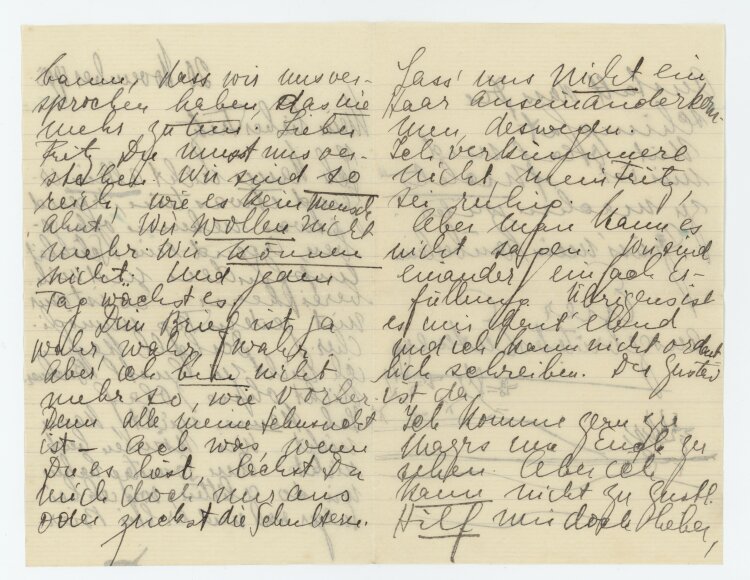 kann, dass wir uns ver-
sprochen haben, das nie
mehr zu tun, Lieber
Fritz, Du musst uns ver-
stehen. Wir sind so
reich, wie es kein Mensch
ahnt. Wir wollen nicht
mehr. Wir können
nicht. Und jeden
Tag wächst es.
Dein Brief ist ja
wahr, wahr, wahr,
Aber ich bin nicht
mehr so, wie vorher.
Denn alle meine Sehnsucht
ist – Ach was, wenn
Du es liest, lachst Du
mich doch nur aus
oder zuckst die Schultern.
Lass' uns nicht ein
Haar auseinanderkom-
men, deswegen.
Ich verkümmere
nicht, mein Fritz,
sei ruhig.
Aber man kann es
nicht sagen. Wir sind
einander einfach Er-
füllung. Übrigens ist
es mir heut' elend
und ich kann nicht ordent
lich schreiben. Der Gustav
ist da,
Ich komme gern zu
um Euch zu
sehen. Aber ich
kann nicht zu Gustl.
Hilf mir doch lieber,